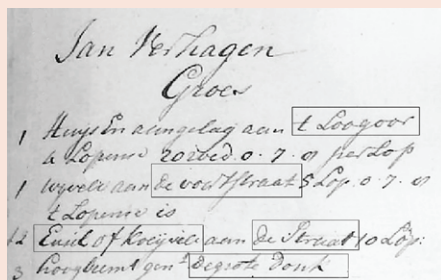 Jan Verhagen
Groes
1 Huys En aangelag aan t Loogoor
a Lopense 20 roed. 0. 7. per Lop
1 aan de voortstraat 5 Lop. 0. 7.
t Lopense is
12 Eusel of Koeijvelt aan de Straat 10 Lop:
3 hooybeemt gent. de grote Donk